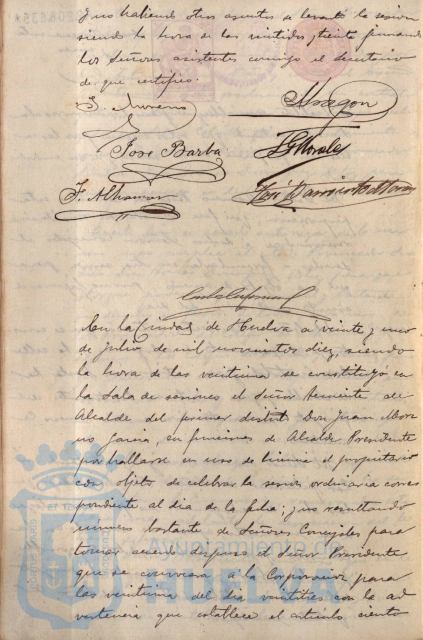 y no habiendo otros asuntos se levantó la sesion
siendo la hora de las veintidos, treinta firmando
los Señores asistentes conmigo el Secretario
de que certifico.
J. Moreno
Aragon
José Barba
Morales
F. Alhamar
José Barri
En la Ciudad de Huelva a veinte y uno
de Julio de mil novecientos diez, siendo
la hora de las veintiuna se constituyó en
la Sala de sesiones el Señor Teniente de
Alcalde del primer distrito Don Juan More
no Garcia, en funciones de Alcalde Presidente
por hallarse en uso de licencia el propietario
con objeto de celebrar la sesion ordinaria corres
pondiente al dia de la fecha; y no resultando
numero bastante de Señores Concejales para
tomar acuerdo dispuso el Señor Presidente
que se convocara á la Corporacion para
las veintiuna del dia veintitres con la ad
vertencia que establece el articulo ciento
AYUNTAMIENTO DE
HUELVA